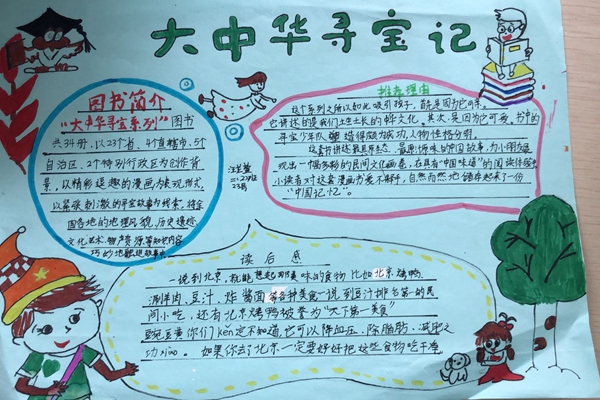 大中华寻宝记
图书简介
"大中华寻宝系列"图书
共34册,以23个省、4个直辖市、5个
自治区、2个特别行政区为创作背
景,以精彩逗趣的漫画为表现形式,
以紧张刺激的寻宝故事为线索,将全
国各地的地理风貌、历史遗迹
文化艺术、物产资源等知识内容
巧妙地
二·2班
23号
推荐理由
这个系列之所以如此吸引孩子,首先是因为它可
它讲述的是我们土生土长的 文化。其次,是因为它可爱,书中的
寻宝少年队塑造得颇为成功,人物性格分明。
这套书讲述最原生态、最原汁原味的中国故事,为小朋友
现出一幅多彩的民间文化画卷,在具有"中国味道"的阅读体验中,
小读者对这套漫画书爱不释手,自然而然地储存起来了一份
"中国记忆"。
读后感
一说到北京,就能想起那美味的食物 比如北京烤鸭
涮羊肉,豆汁,炸酱面等各种美食一说到豆汁排名第一的民
间小吃,还有北京烤鸭被誉为"天下第一美食"
豌豆黄你们kěn定不知道,它可以降血压,除脂肪、减肥之
功xiào。如果你去了北京一定要好好把这些食物吃干净